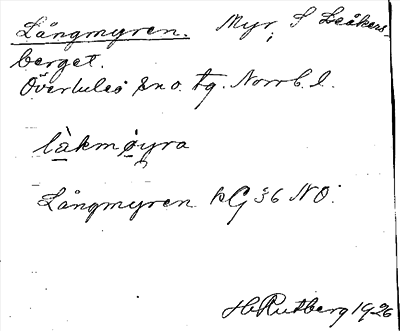 Långmyren. Myr, S Leåkers-
berget.
Överluleå sn o. tg. Norrb. l.
làkmøyra
Långmyren kG 36 NO.
H. Rutberg 1926